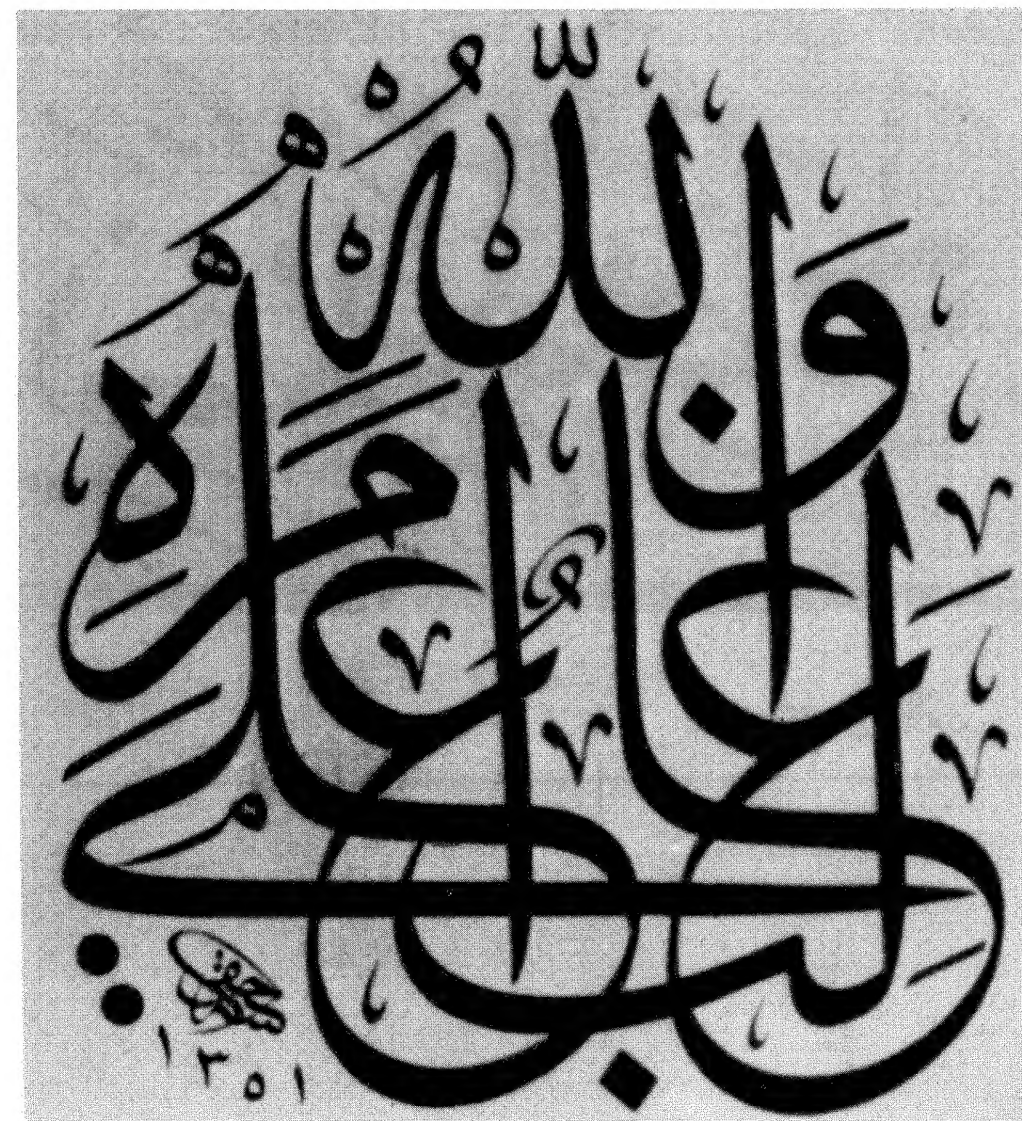 وَاللّٰهُ غَالِبٌ عَلٰى أَمْرِهِ
١٣٥١